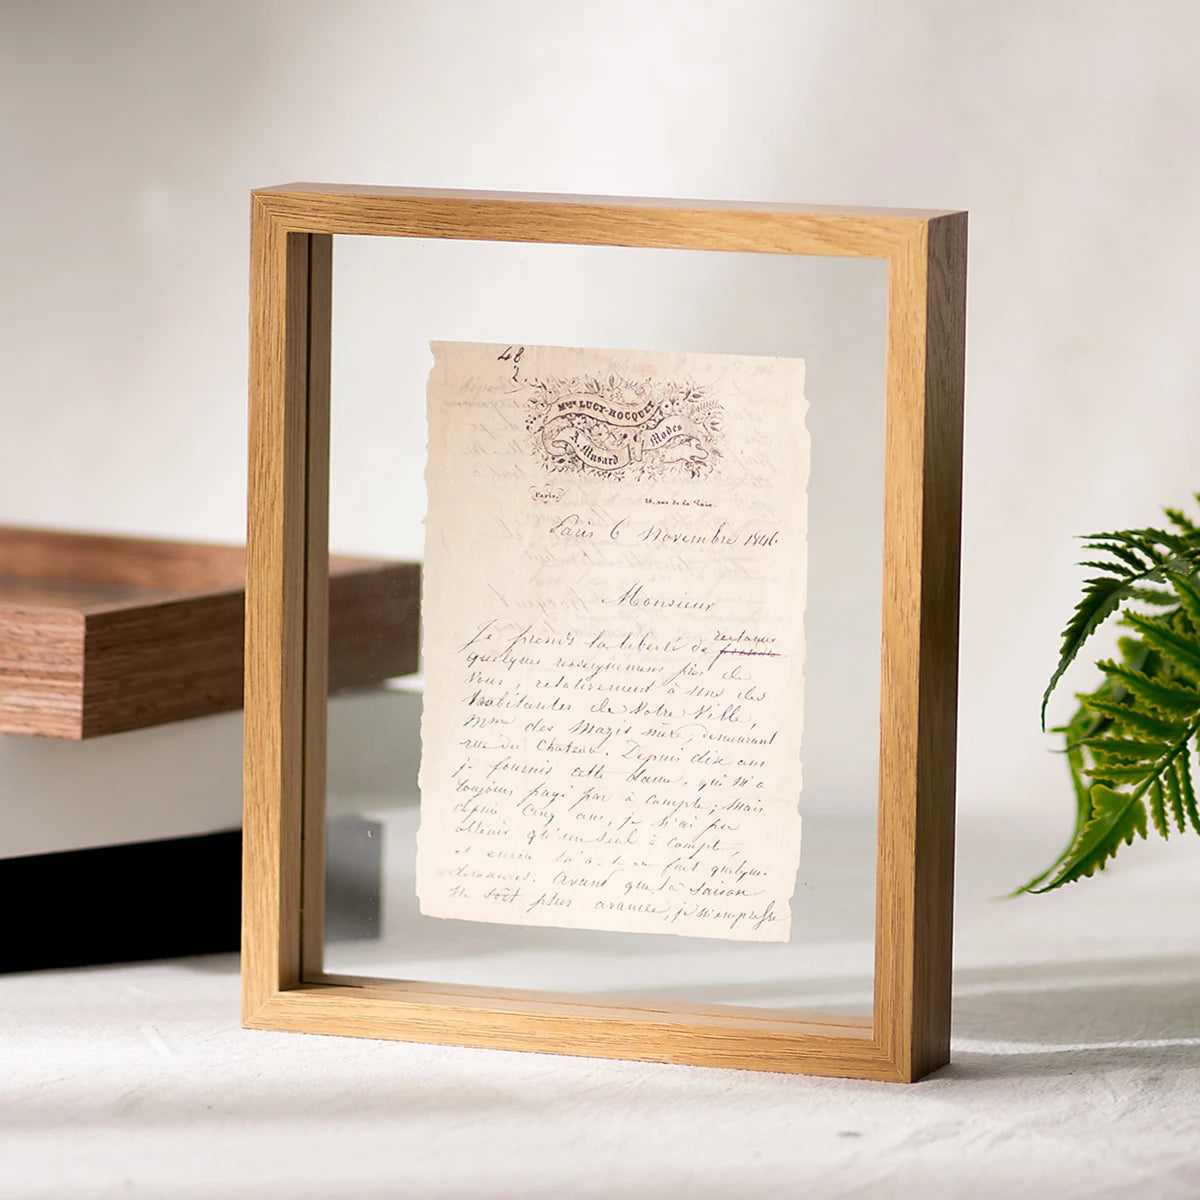 48
2
Mme LUCY-HOCQUET
A. Musard Modes
Paris. 26, rue de la Paix.
Paris 6 Novembre 1846
Monsieur
Je prends la liberté de reclamer
quelques renseignemens près de
Vous, relativement à une des
habitantes de Votre Ville,
Mme des Mazis mère, demeurant
rue du Chateau. Depuis dix ans
je fournis cette dame, qui m'a
toujours payé par à compte; mais
depuis cinq ans, je n'ai pu
obtenir qu'un seul à compte,
et encore m'a-t-on fait quelques
demandes. Avant que la saison
ne soit plus avancée, je m'empresse